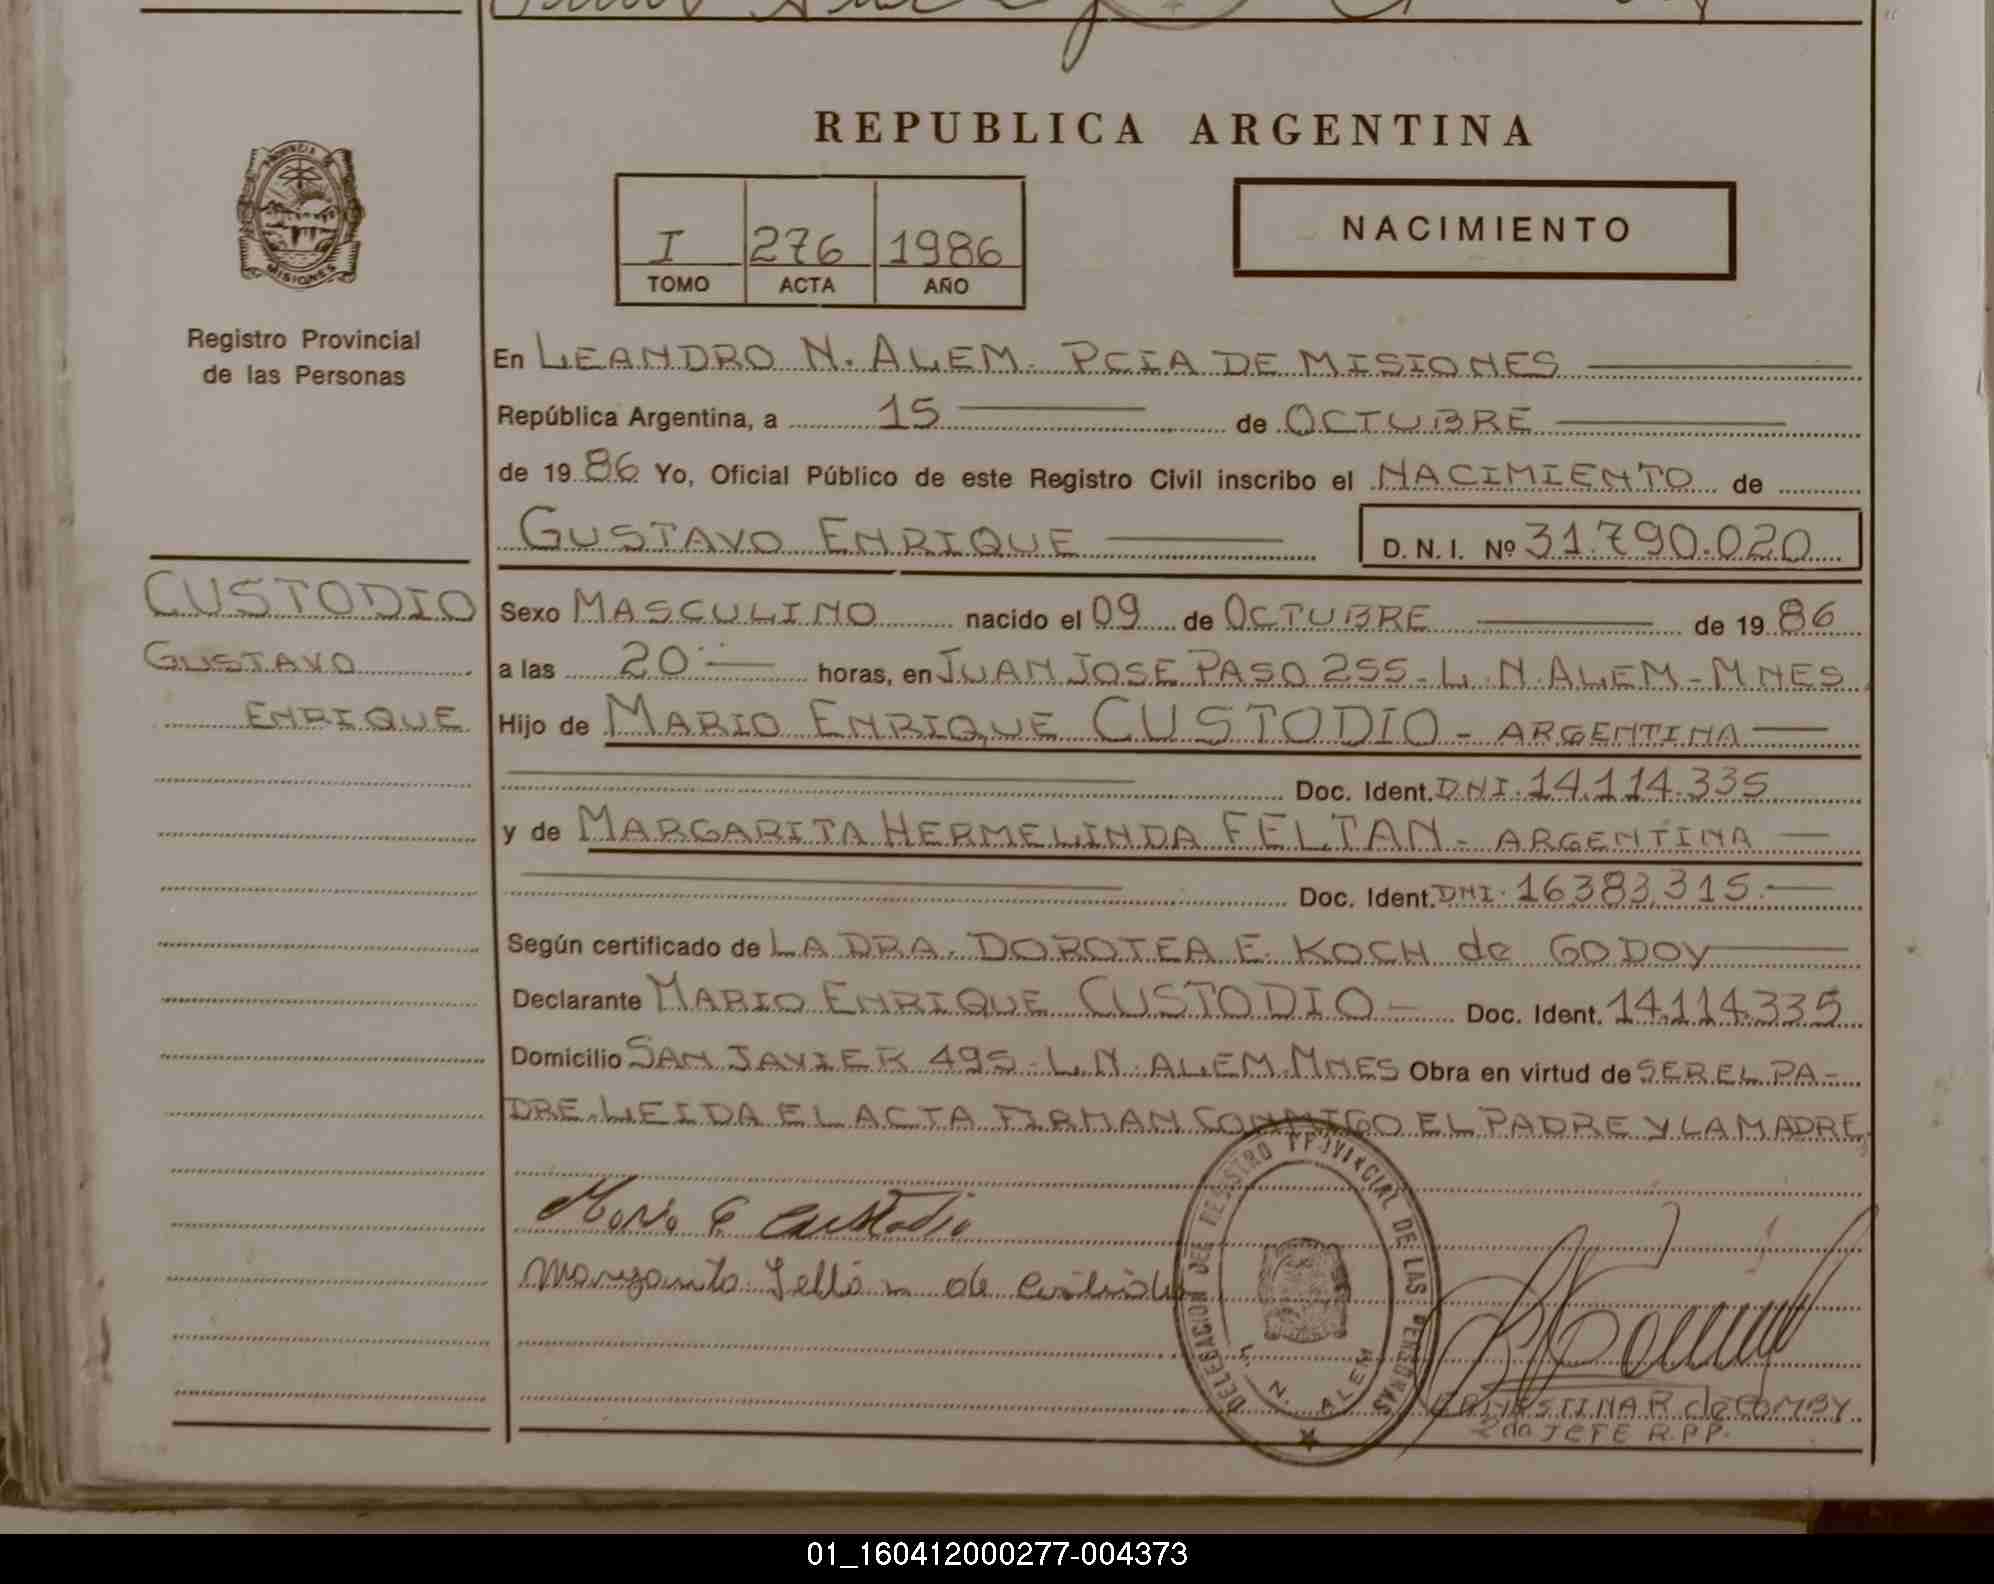 REPUBLICA ARGENTINA
NACIMIENTO
I 276 1986
TOMO ACTA AÑO
PROVINCIA DE
MISIONES
Registro Provincial
de las Personas
En LEANDRO N. ALEM. PCIA DE MISIONES
República Argentina, a 15 de OCTUBRE
de 1986 Yo, Oficial Público de este Registro Civil inscribo el NACIMIENTO de
GUSTAVO ENRIQUE D. N. I. Nº 31.790.020
CUSTODIO
GUSTAVO
ENRIQUE
Sexo MASCULINO nacido el 09 de OCTUBRE de 1986
a las 20 horas, en JUAN JOSE PASO 255 - L. N. ALEM - MNES
Hijo de MARIO ENRIQUE CUSTODIO - ARGENTINA
Doc. Ident. DNI. 14.114.335
y de MARGARITA HERMELINDA FELTAN - ARGENTINA
Doc. Ident. DNI. 16.383.315
Según certificado de LA DRA. DOROTEA E. KOCH de GODOY
Declarante MARIO ENRIQUE CUSTODIO - Doc. Ident. 14.114.335
Domicilio SAN JAVIER 495 - L. N. ALEM. MNES Obra en virtud de SER EL PA-
DRE. LEIDA EL ACTA FIRMAN CONMIGO EL PADRE Y LA MADRE
Mario E Custodio
Margarita Feltan de Custodio
DELEGACION DEL REGISTRO PROVINCIAL DE LAS PERSONAS
L. N. ALEM
R de COMBY
2do JEFE R.P.P.
01_160412000277-004373